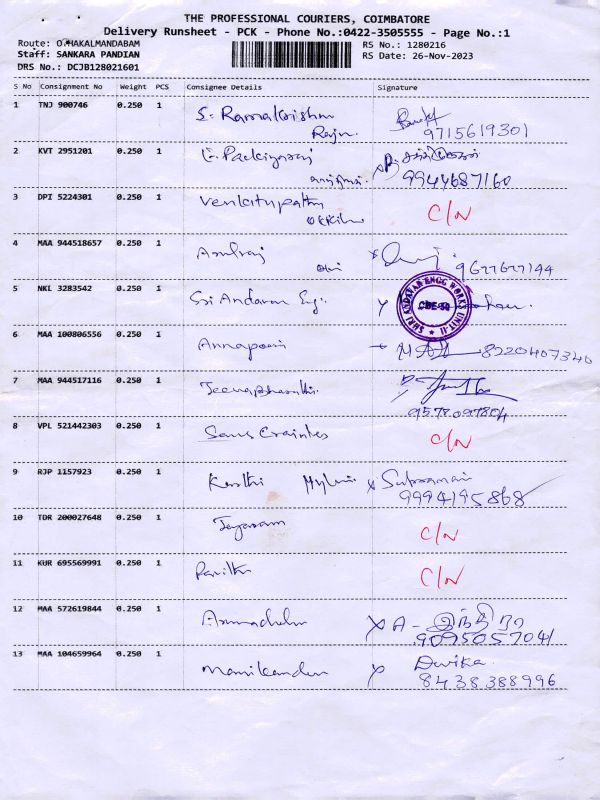 THE PROFESSIONAL COURIERS, COIMBATORE
Delivery Runsheet - PCK - Phone No.:0422-3505555 - Page No.:1
Route: O.MAKALMANDABAM
Staff: SANKARA PANDIAN
DRS No.: DCJB128021601
RS No.: 1280216
RS Date: 26-Nov-2023
S No Consignment No Weight PCS Consignee Details Signature
1 TNJ 900746 0.250 1 S. Ramakrishn
Raju.
9715619301
2 KVT 2951201 0.250 1
9944687160
3 DPI 5224301 0.250 1 Venkatupathy C/N
4 MAA 944518657 0.250 1 Amlraj
9677677144
5 NKL 3283542 0.250 1 Sri Andavar Eng.
SHRI ANDAVAR ENGG WORKS UNIT-II
CBE-50
6 MAA 100806556 0.250 1 Annapoorni 8220407340
7 MAA 944517116 0.250 1 Jeevapharathi.
9578097804
8 VPL 521442303 0.250 1 C/N
9 RJP 1157923 0.250 1 Karthi
9994195868
10 TDR 200027648 0.250 1 Jayaram C/N
11 KUR 695569991 0.250 1 Pavithr C/N
12 MAA 572619844 0.250 1 A - இந்திரா
9095057041
13 MAA 104659964 0.250 1 Manikandan Devika.
8438388996